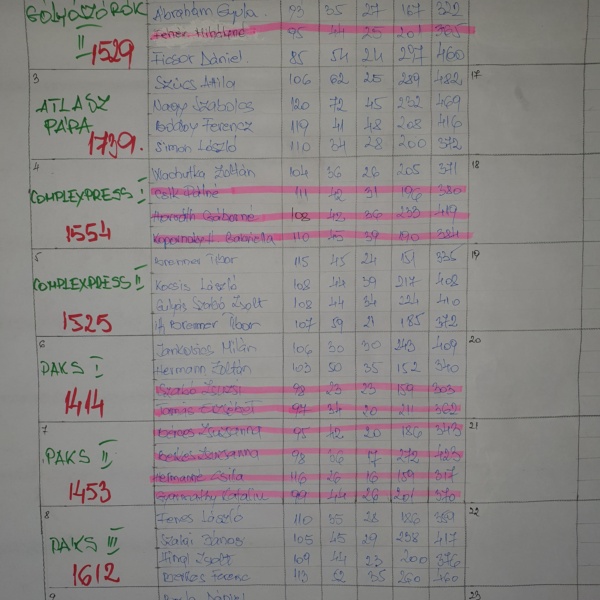 GÓLYÁSZÓRÓK II 1529
Ábrahám Gyula 93 35 27 167 322
95 44 25 201 365
Fodor Dániel 85 54 24 297 460
3 ATLASZ PÁRA 1739. 17
Szűcs Attila 106 62 25 289 482
Nagy Szabolcs 120 72 45 232 469
Ferenc 119 41 48 208 416
Simon László 110 34 28 200 372
4 COMPLEXPRESS I 1554 18
Wachutka Zoltán 104 36 26 205 371
Csík Pálné 111 42 31 196 380
Horváth Gáborné 108 42 36 233 419
Gabriella 110 45 39 190 384
5 COMPLEXPRESS II 1525 19
Tibor 115 45 24 151 335
Kocsis László 108 44 39 217 408
Gulyás Szabó Zsolt 108 44 34 224 410
Ifj Tibor 107 59 21 185 372
6 PAKS I 1414 20
Jankovics Milán 106 30 30 243 409
Hermann Zoltán 103 50 35 152 340
Szabó Zsuzsi 98 23 23 159 303
Tamás Erzsébet 97 34 20 211 362
7 PAKS II 1453 21
Zsuzsanna 95 42 20 186 343
Zsuzsanna 98 36 17 272 423
Hermanné Csilla 116 26 16 159 317
Katalin 99 44 26 201 370
8 PAKS III 1612 22
Fenes László 110 35 28 186 359
Szalai János 105 45 29 238 417
Zsolt 109 44 23 200 376
Ferenc 113 52 35 260 460
9 Dániel 23